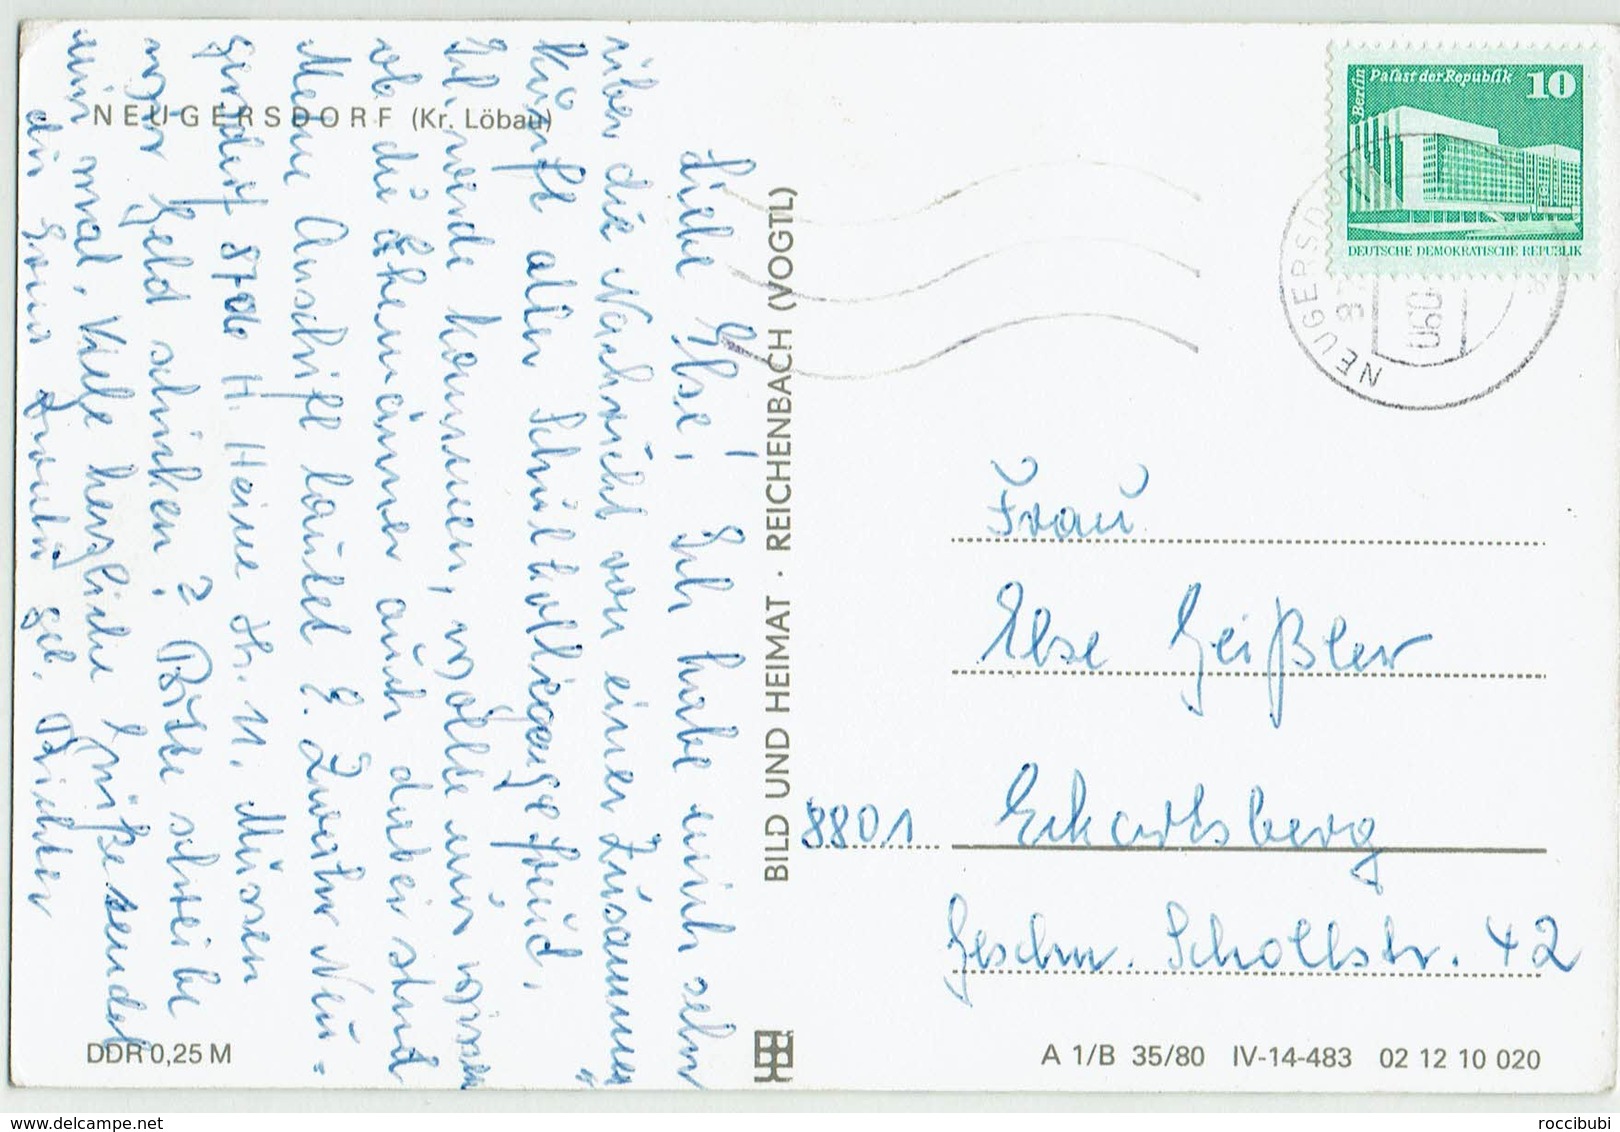 NEUGERSDORF (Kr. Löbau)
Liebe Else! Ich habe mich sehr
über die Nachricht von einer Zusammen„
künft aller Schulkollegen gefreud.
Ich werde kommen, wollte nur wissen
ob die Ehemänner auch dabei sind
Meine Anschrift lautet E. Zweitler Neu-
gersdorf 8706 H. Heine Str. 11. Müssen
wir Geld schicken? Bitte schreibe
mir mal. Viele herzliche Grüße sendet
dir geb. Richter
BILD UND HEIMAT · REICHENBACH (VOGTL)
Berlin
Palast der Republik 10
DEUTSCHE DEMOKRATISCHE REPUBLIK
NEUGERSDORF
Frau
Else Geißler
8801 Eckartsberg
Geschw. Schollstr. 42
DDR 0,25 M
A 1/B 35/80 IV-14-483 02 12 10 020
delcampe.net
roccibubi